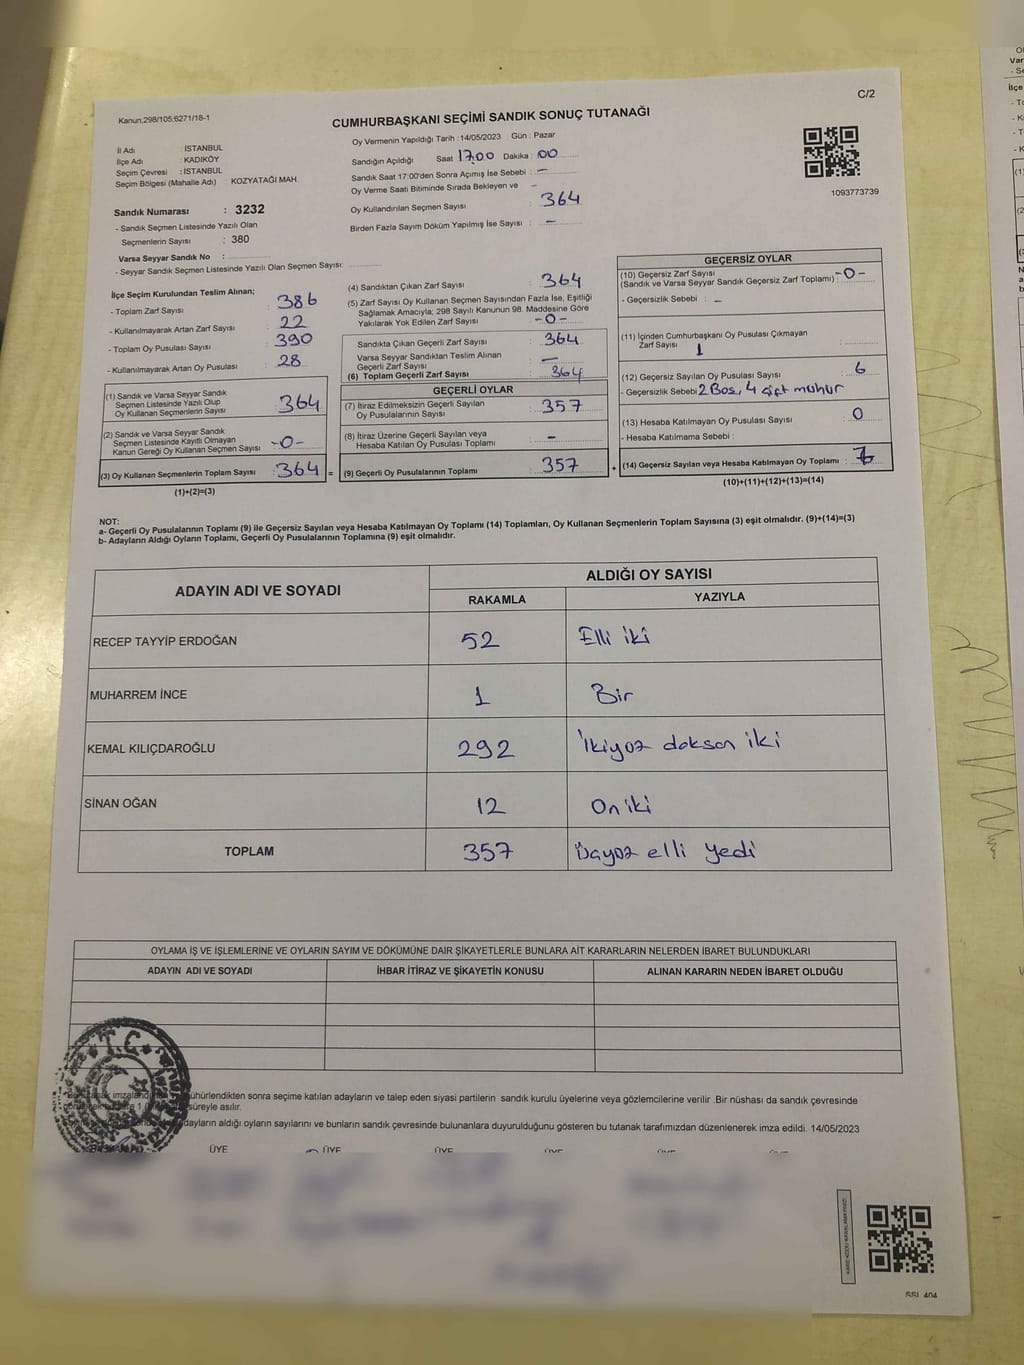 C/2
Kanun:298/105,6271/18-1
CUMHURBAŞKANI SEÇİMİ SANDIK SONUÇ TUTANAĞI
İl Adı : İSTANBUL
İlçe Adı : KADIKÖY
Seçim Çevresi : İSTANBUL
Seçim Bölgesi (Mahalle Adı) : KOZYATAĞI MAH.
Sandık Numarası : 3232
- Sandık Seçmen Listesinde Yazılı Olan
Seçmenlerin Sayısı : 380
Varsa Seyyar Sandık No :
- Seyyar Sandık Seçmen Listesinde Yazılı Olan Seçmen Sayısı:
Oy Vermenin Yapıldığı Tarih : 14/05/2023 Gün : Pazar
Sandığın Açıldığı Saat 17.00 Dakika : 00
Sandık Saat 17:00'den Sonra Açımış İse Sebebi : -
Oy Verme Saati Bitiminde Sırada Bekleyen ve -
Oy Kullandırılan Seçmen Sayısı : 364
Birden Fazla Sayım Döküm Yapılmış İse Sayısı : -
1093773739
İlçe Seçim Kurulundan Teslim Alınan;
- Toplam Zarf Sayısı : 386
- Kullanılmayarak Artan Zarf Sayısı : 22
- Toplam Oy Pusulası Sayısı : 390
- Kullanılmayarak Artan Oy Pusulası : 28
(1) Sandık ve Varsa Seyyar Sandık
Seçmen Listesinde Yazılı Olup
Oy Kullanan Seçmenlerin Sayısı : 364
(2) Sandık ve Varsa Seyyar Sandık
Seçmen Listesinde Kayıtlı Olmayan
Kanun Gereği Oy Kullanan Seçmen Sayısı -0-
(3) Oy Kullanan Seçmenlerin Toplam Sayısı : 364 =
(1)+(2)=(3)
(4) Sandıktan Çıkan Zarf Sayısı : 364
(5) Zarf Sayısı Oy Kullanan Seçmen Sayısından Fazla İse, Eşitliği
Sağlamak Amacıyla; 298 Sayılı Kanunun 98. Maddesine Göre
Yakılarak Yok Edilen Zarf Sayısı : -0-
Sandıkta Çıkan Geçerli Zarf Sayısı : 364
Varsa Seyyar Sandıktan Teslim Alınan
Geçerli Zarf Sayısı : -
(6) Toplam Geçerli Zarf Sayısı : 364
GEÇERLİ OYLAR
(7) İtiraz Edilmeksizin Geçerli Sayılan
Oy Pusulalarının Sayısı : 357
(8) İtiraz Üzerine Geçerli Sayılan veya
Hesaba Katılan Oy Pusulası Toplamı : -
(9) Geçerli Oy Pusulalarının Toplamı : 357 +
GEÇERSİZ OYLAR
(10) Geçersiz Zarf Sayısı -0-
(Sandık ve Varsa Seyyar Sandık Geçersiz Zarf Toplamı)
- Geçersizlik Sebebi : -
(11) İçinden Cumhurbaşkanı Oy Pusulası Çıkmayan
Zarf Sayısı 1
(12) Geçersiz Sayılan Oy Pusulası Sayısı : 6
- Geçersizlik Sebebi 2 Boş, 4 çift mühür
(13) Hesaba Katılmayan Oy Pusulası Sayısı : 0
- Hesaba Katılmama Sebebi :
(14) Geçersiz Sayılan veya Hesaba Katılmayan Oy Toplamı : 7
(10)+(11)+(12)+(13)=(14)
NOT:
a- Geçerli Oy Pusulalarının Toplamı (9) ile Geçersiz Sayılan veya Hesaba Katılmayan Oy Toplamı (14) Toplamları, Oy Kullanan Seçmenlerin Toplam Sayısına (3) eşit olmalıdır. (9)+(14)=(3)
b- Adayların Aldığı Oyların Toplamı, Geçerli Oy Pusulalarının Toplamına (9) eşit olmalıdır.
ADAYIN ADI VE SOYADI ALDIĞI OY SAYISI
RAKAMLA YAZIYLA
RECEP TAYYİP ERDOĞAN 52 Elli iki
MUHARREM İNCE 1 Bir
KEMAL KILIÇDAROĞLU 292 İkiyüz doksan iki
SİNAN OĞAN 12 On iki
TOPLAM 357 Üçyüz elli yedi
OYLAMA İŞ VE İŞLEMLERİNE VE OYLARIN SAYIM VE DÖKÜMÜNE DAİR ŞİKAYETLERLE BUNLARA AİT KARARLARIN NELERDEN İBARET BULUNDUKLARI
ADAYIN ADI VE SOYADI İHBAR İTİRAZ VE ŞİKAYETİN KONUSU ALINAN KARARIN NEDEN İBARET OLDUĞU
T.C.
mühürlendikten sonra seçime katılan adayların ve talep eden siyasi partilerin sandık kurulu üyelerine veya gözlemcilerine verilir .Bir nüshası da sandık çevresinde
süreyle asılır.
adayların aldığı oyların sayılarını ve bunların sandık çevresinde bulunanlara duyurulduğunu gösteren bu tutanak tarafımızdan düzenlenerek imza edildi. 14/05/2023
ÜYE ÜYE ÜYE